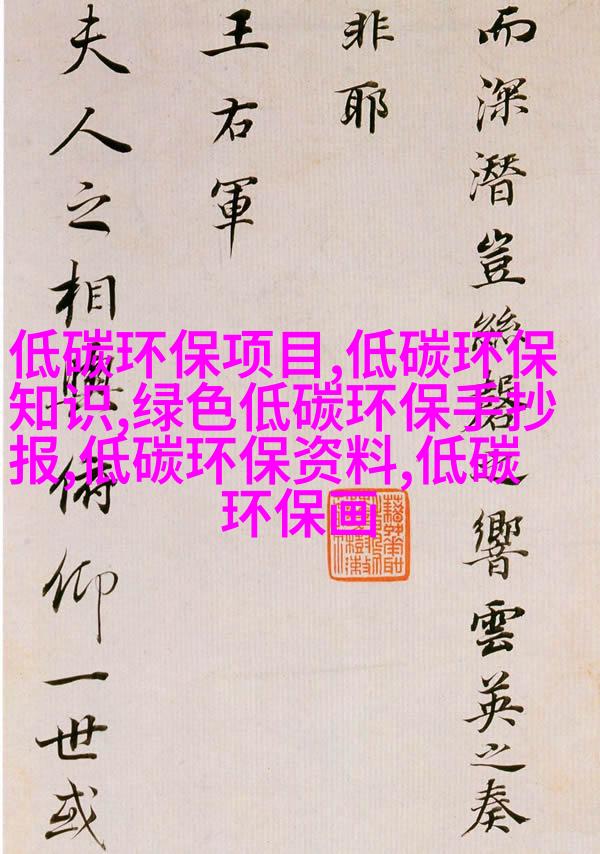 而深潛豈絲磬之響雲英之奏
非耶
王右軍
夫人之相與俯仰一世或
低碳环保项目,低碳环保
知识,绿色低碳环保手抄
报,低碳环保资料,低碳
环保画